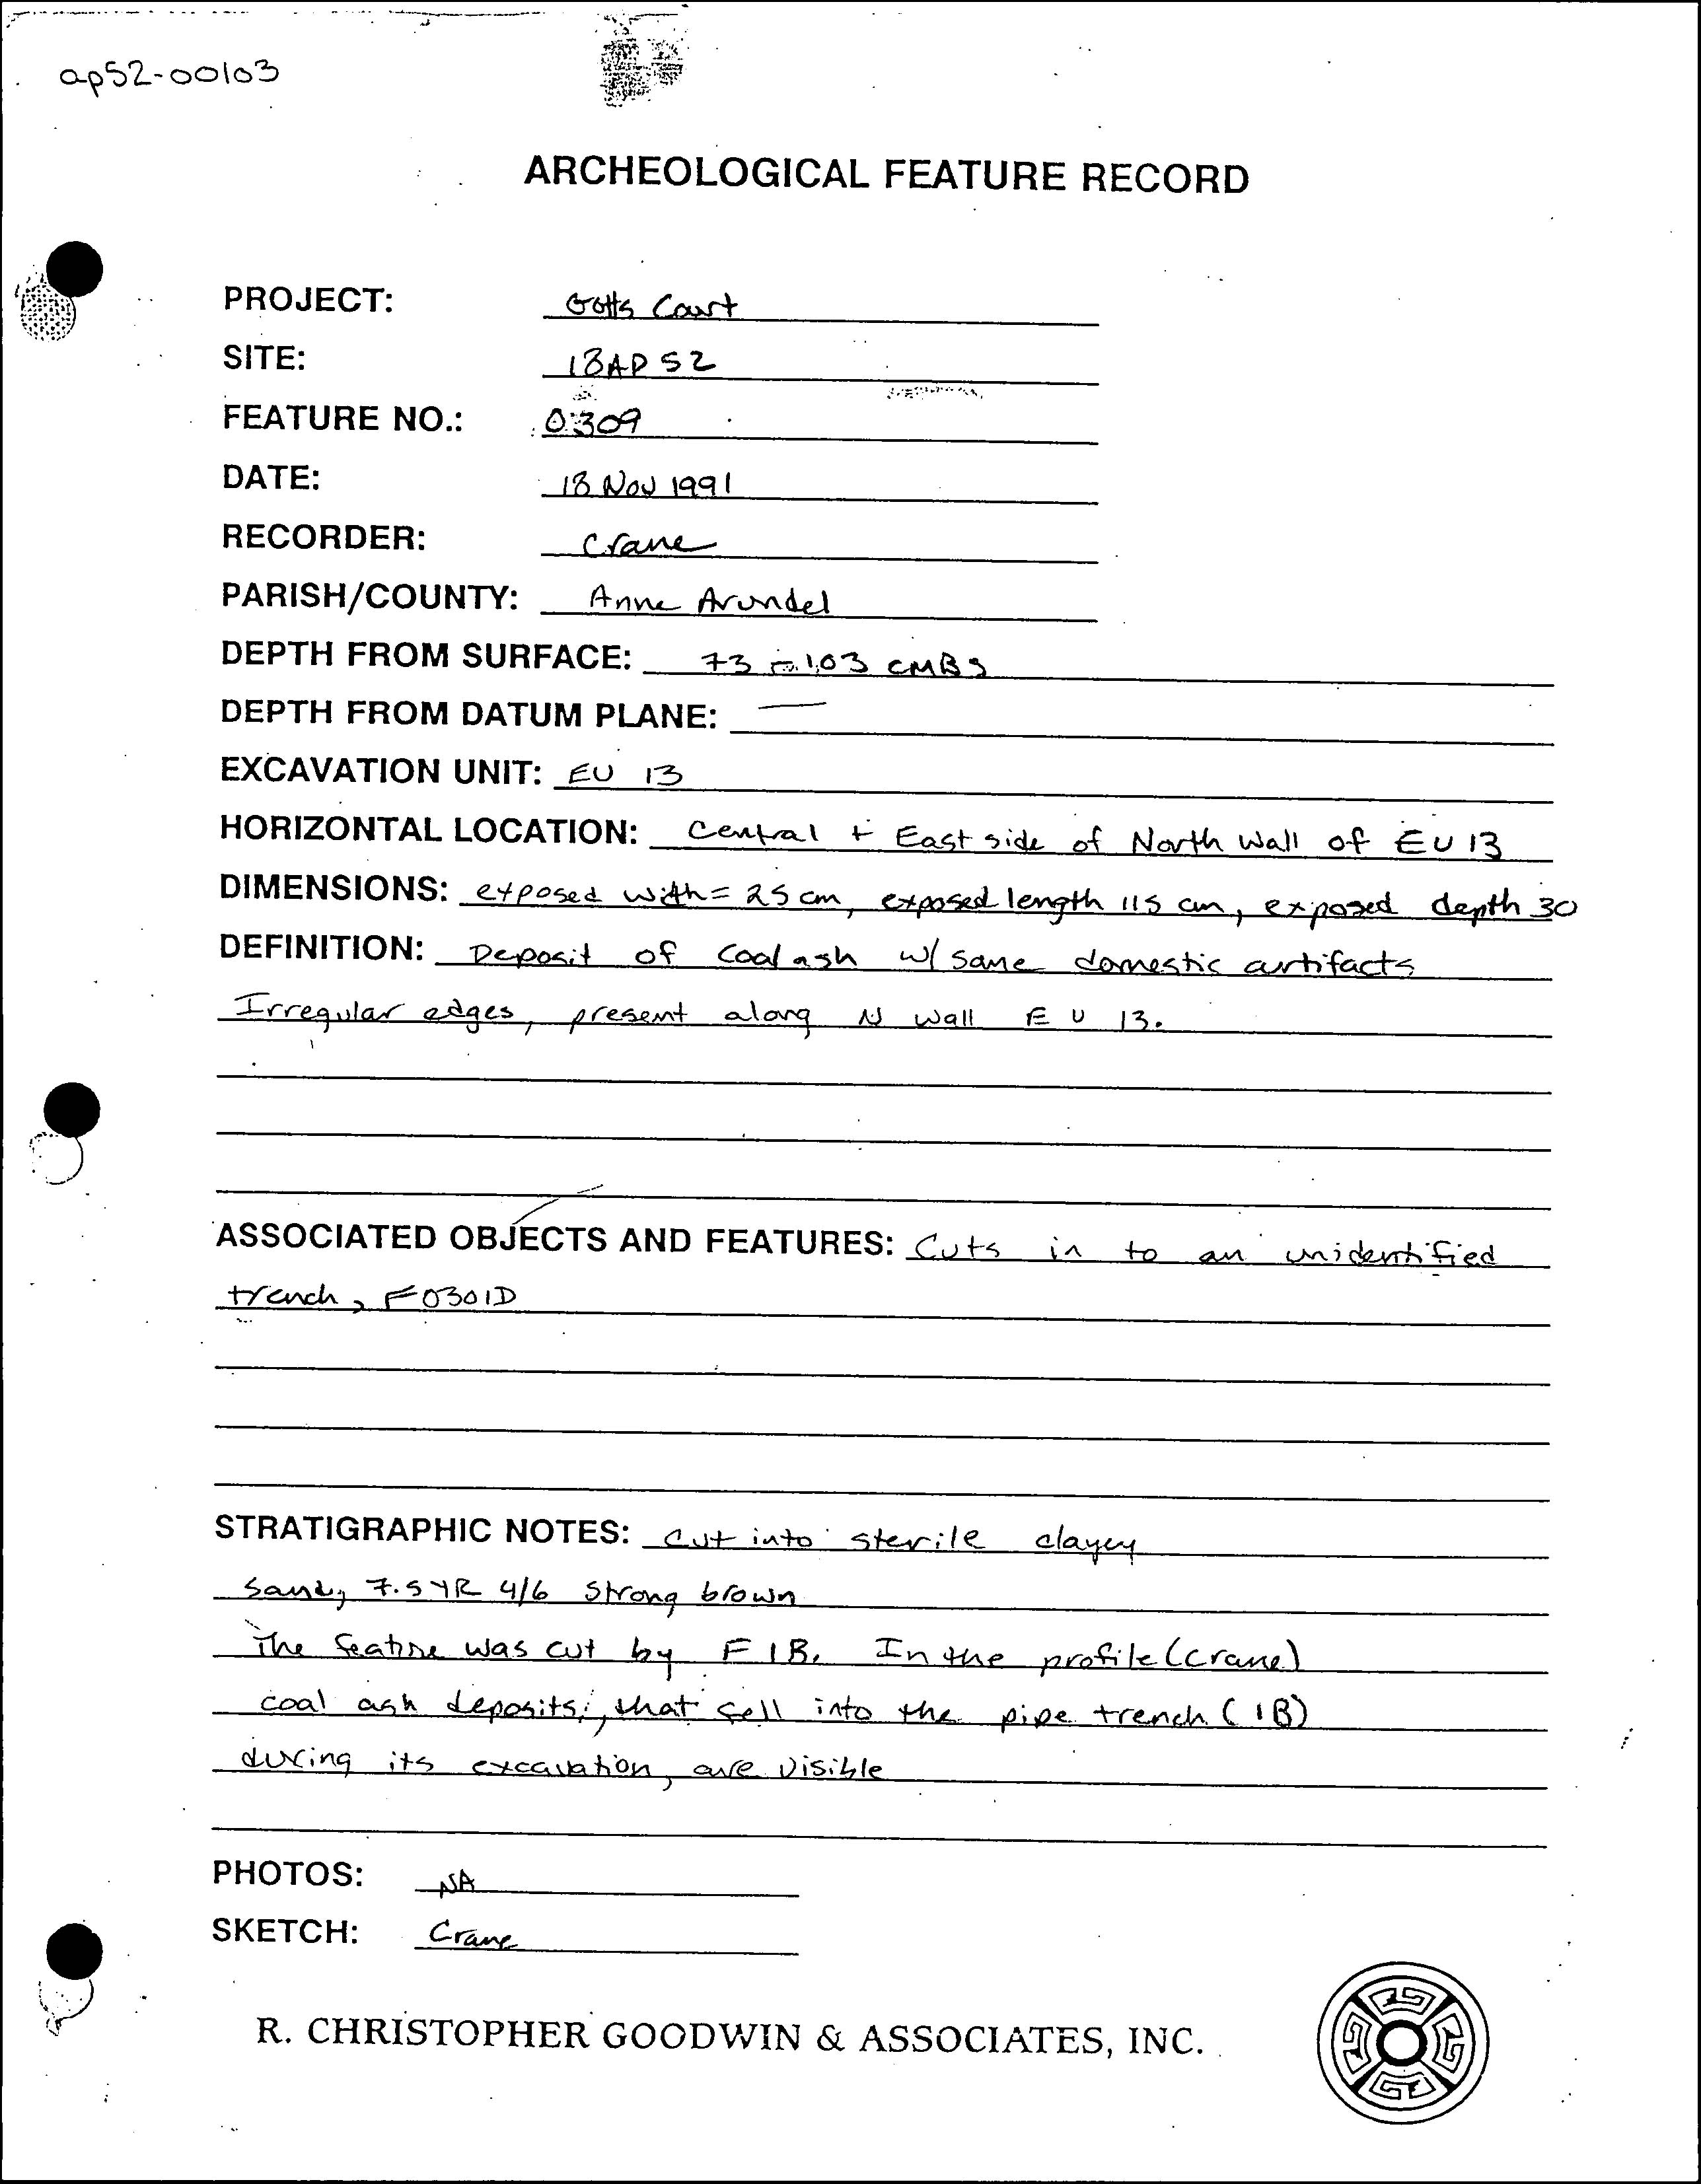 ap52-00103
ARCHEOLOGICAL FEATURE RECORD
PROJECT: Gotts Court
SITE: 18AP 52
FEATURE NO.: 0309
DATE: 18 Nov 1991
RECORDER: Crane
PARISH/COUNTY: Anne Arundel
DEPTH FROM SURFACE: 73 - 103 CMBS
DEPTH FROM DATUM PLANE: —
EXCAVATION UNIT: EU 13
HORIZONTAL LOCATION: Central + East side of North Wall of EU 13
DIMENSIONS: exposed with = 25 cm, exposed length 115 cm, exposed depth 30
DEFINITION: Deposit of Coal ash w/ some domestic artifacts
Irregular edges, present along N wall EU 13.
ASSOCIATED OBJECTS AND FEATURES: Cuts in to an unidentified
trench, F0301D
STRATIGRAPHIC NOTES: Cut into sterile clayey
sand, 7.5YR 4/6 strong brown
The feature was cut by F 1B. In the profile (Crane)
coal ash deposits, that fell into the pipe trench (1B)
during its excavation, are visible
PHOTOS: NA
SKETCH: Crane
R. CHRISTOPHER GOODWIN & ASSOCIATES, INC.